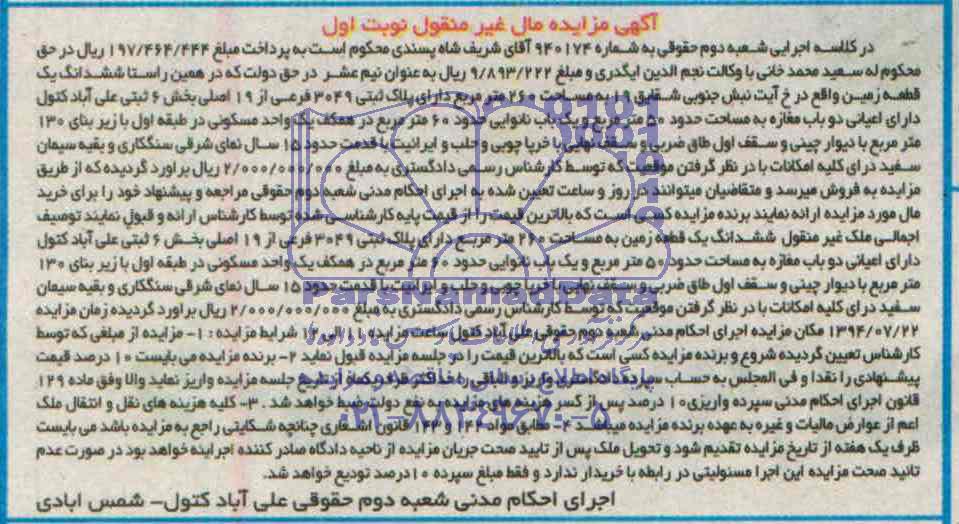 آگهی مزایده مال غیر منقول نوبت اول
در کلاسه اجرایی شعبه دوم حقوقی به شماره ۹۴۰۱۷۴ آقای شریف شاه پسندی محکوم است به پرداخت مبلغ ۱۹۷/۴۶۴/۴۴۴ ریال در حق
محکوم له سعید محمد خانی با وکالت نجم الدین ایگدری و مبلغ ۹/۸۹۳/۲۲۲ ریال به عنوان نیم عشر در حق دولت که در همین راستا ششدانگ یک
قطعه زمین واقع در خ آیت نبش جنوبی شقایق ۱۹ به مساحت ۲۶۰ متر مربع دارای پلاک ثبتی ۳۰۴۹ فرعی از ۱۹ اصلی بخش ۶ ثبتی علی آباد کتول
دارای اعیانی دو باب مغازه به مساحت حدود ۵۰ متر مربع و یک باب نانوایی حدود ۶۰ متر مربع در همکف یک واحد مسکونی در طبقه اول با زیر بنای ۱۳۰
متر مربع با دیوار چینی و سقف اول طاق ضربی و سقف نهایی با خرپا چوبی و حلب و ایرانیت با قدمت حدود ۱۵ سال نمای شرقی سنگکاری و بقیه سیمان
سفید درای کلیه امکانات با در نظر گرفتن موقعیت که توسط کارشناس رسمی دادگستری به مبلغ ۲/۰۰۰/۰۰۰/۰۰۰ ریال براورد گردیده که از طریق
مزایده به فروش میرسد و متقاضیان میتوانند در روز و ساعت تعیین شده به اجرای احکام مدنی شعبه دوم حقوقی مراجعه و پیشنهاد خود را برای خرید
مال مورد مزایده ارائه نمایند برنده مزایده کسی است که بالاترین قیمت را از قیمت پایه کارشناسی شده توسط کارشناس ارائه و قبول نمایند توصیف
اجمالی ملک غیر منقول ششدانگ یک قطعه زمین به مساحت ۲۶۰ متر مربع دارای پلاک ثبتی ۳۰۴۹ فرعی از ۱۹ اصلی بخش ۶ ثبتی علی آباد کتول
دارای اعیانی دو باب مغازه به مساحت حدود ۵۰ متر مربع و یک باب نانوایی حدود ۶۰ متر مربع در همکف یک واحد مسکونی در طبقه اول با زیر بنای ۱۳۰
متر مربع با دیوار چینی و سقف اول طاق ضربی و سقف نهایی با خرپا چوبی و حلب و ایرانیت با قدمت حدود ۱۵ سال نمای شرقی سنگکاری و بقیه سیمان
سفید درای کلیه امکانات با در نظر گرفتن موقعیت توسط کارشناس رسمی دادگستری به مبلغ ۲/۰۰۰/۰۰۰/۰۰۰ ریال براورد گردیده زمان مزایده
۱۳۹۴/۰۷/۲۲ مکان مزایده اجرای احکام مدنی شعبه دوم حقوقی علی آباد کتول ساعت مزایده ۱۱ الی ۱۲ شرایط مزایده : ۱- مزایده از مبلغی که توسط
کارشناس تعیین گردیده شروع و برنده مزایده کسی است که بالاترین قیمت را در جلسه مزایده قبول نماید ۲- برنده مزایده می بایست ۱۰ درصد قیمت
پیشنهادی را نقدا و فی المجلس به حساب سپرده دادگستری واریز و الباقی را حداکثر ظرف یکماه از تاریخ جلسه مزایده واریز نماید والا وفق ماده ۱۲۹
قانون اجرای احکام مدنی سپرده واریزی ۱۰ درصد پس از کسر هزینه های مزایده به نفع دولت ضبط خواهد شد . ۳- کلیه هزینه های نقل و انتقال ملک
اعم از عوارض مالیات و غیره به عهده برنده مزایده میباشد ۴- مطابق مواد ۱۴۲ و ۱۴۳ قانون چنانچه شکایتی راجع به مزایده باشد می بایست
ظرف یک هفته از تاریخ مزایده تقدیم شود و تحویل ملک پس از تایید صحت جریان مزایده از ناحیه دادگاه صادر کننده اجرائیه خواهد بود در صورت عدم
تائید صحت مزایده این اجرا مسئولیتی در رابطه با خریدار ندارد و فقط مبلغ سپرده ۱۰درصد تودیع خواهد شد.
اجرای احکام مدنی شعبه دوم حقوقی علی آباد کتول- شمس ابادی
ParsNamadData
۰۲۱-۸۸۳۴۹۶۷۰-۵